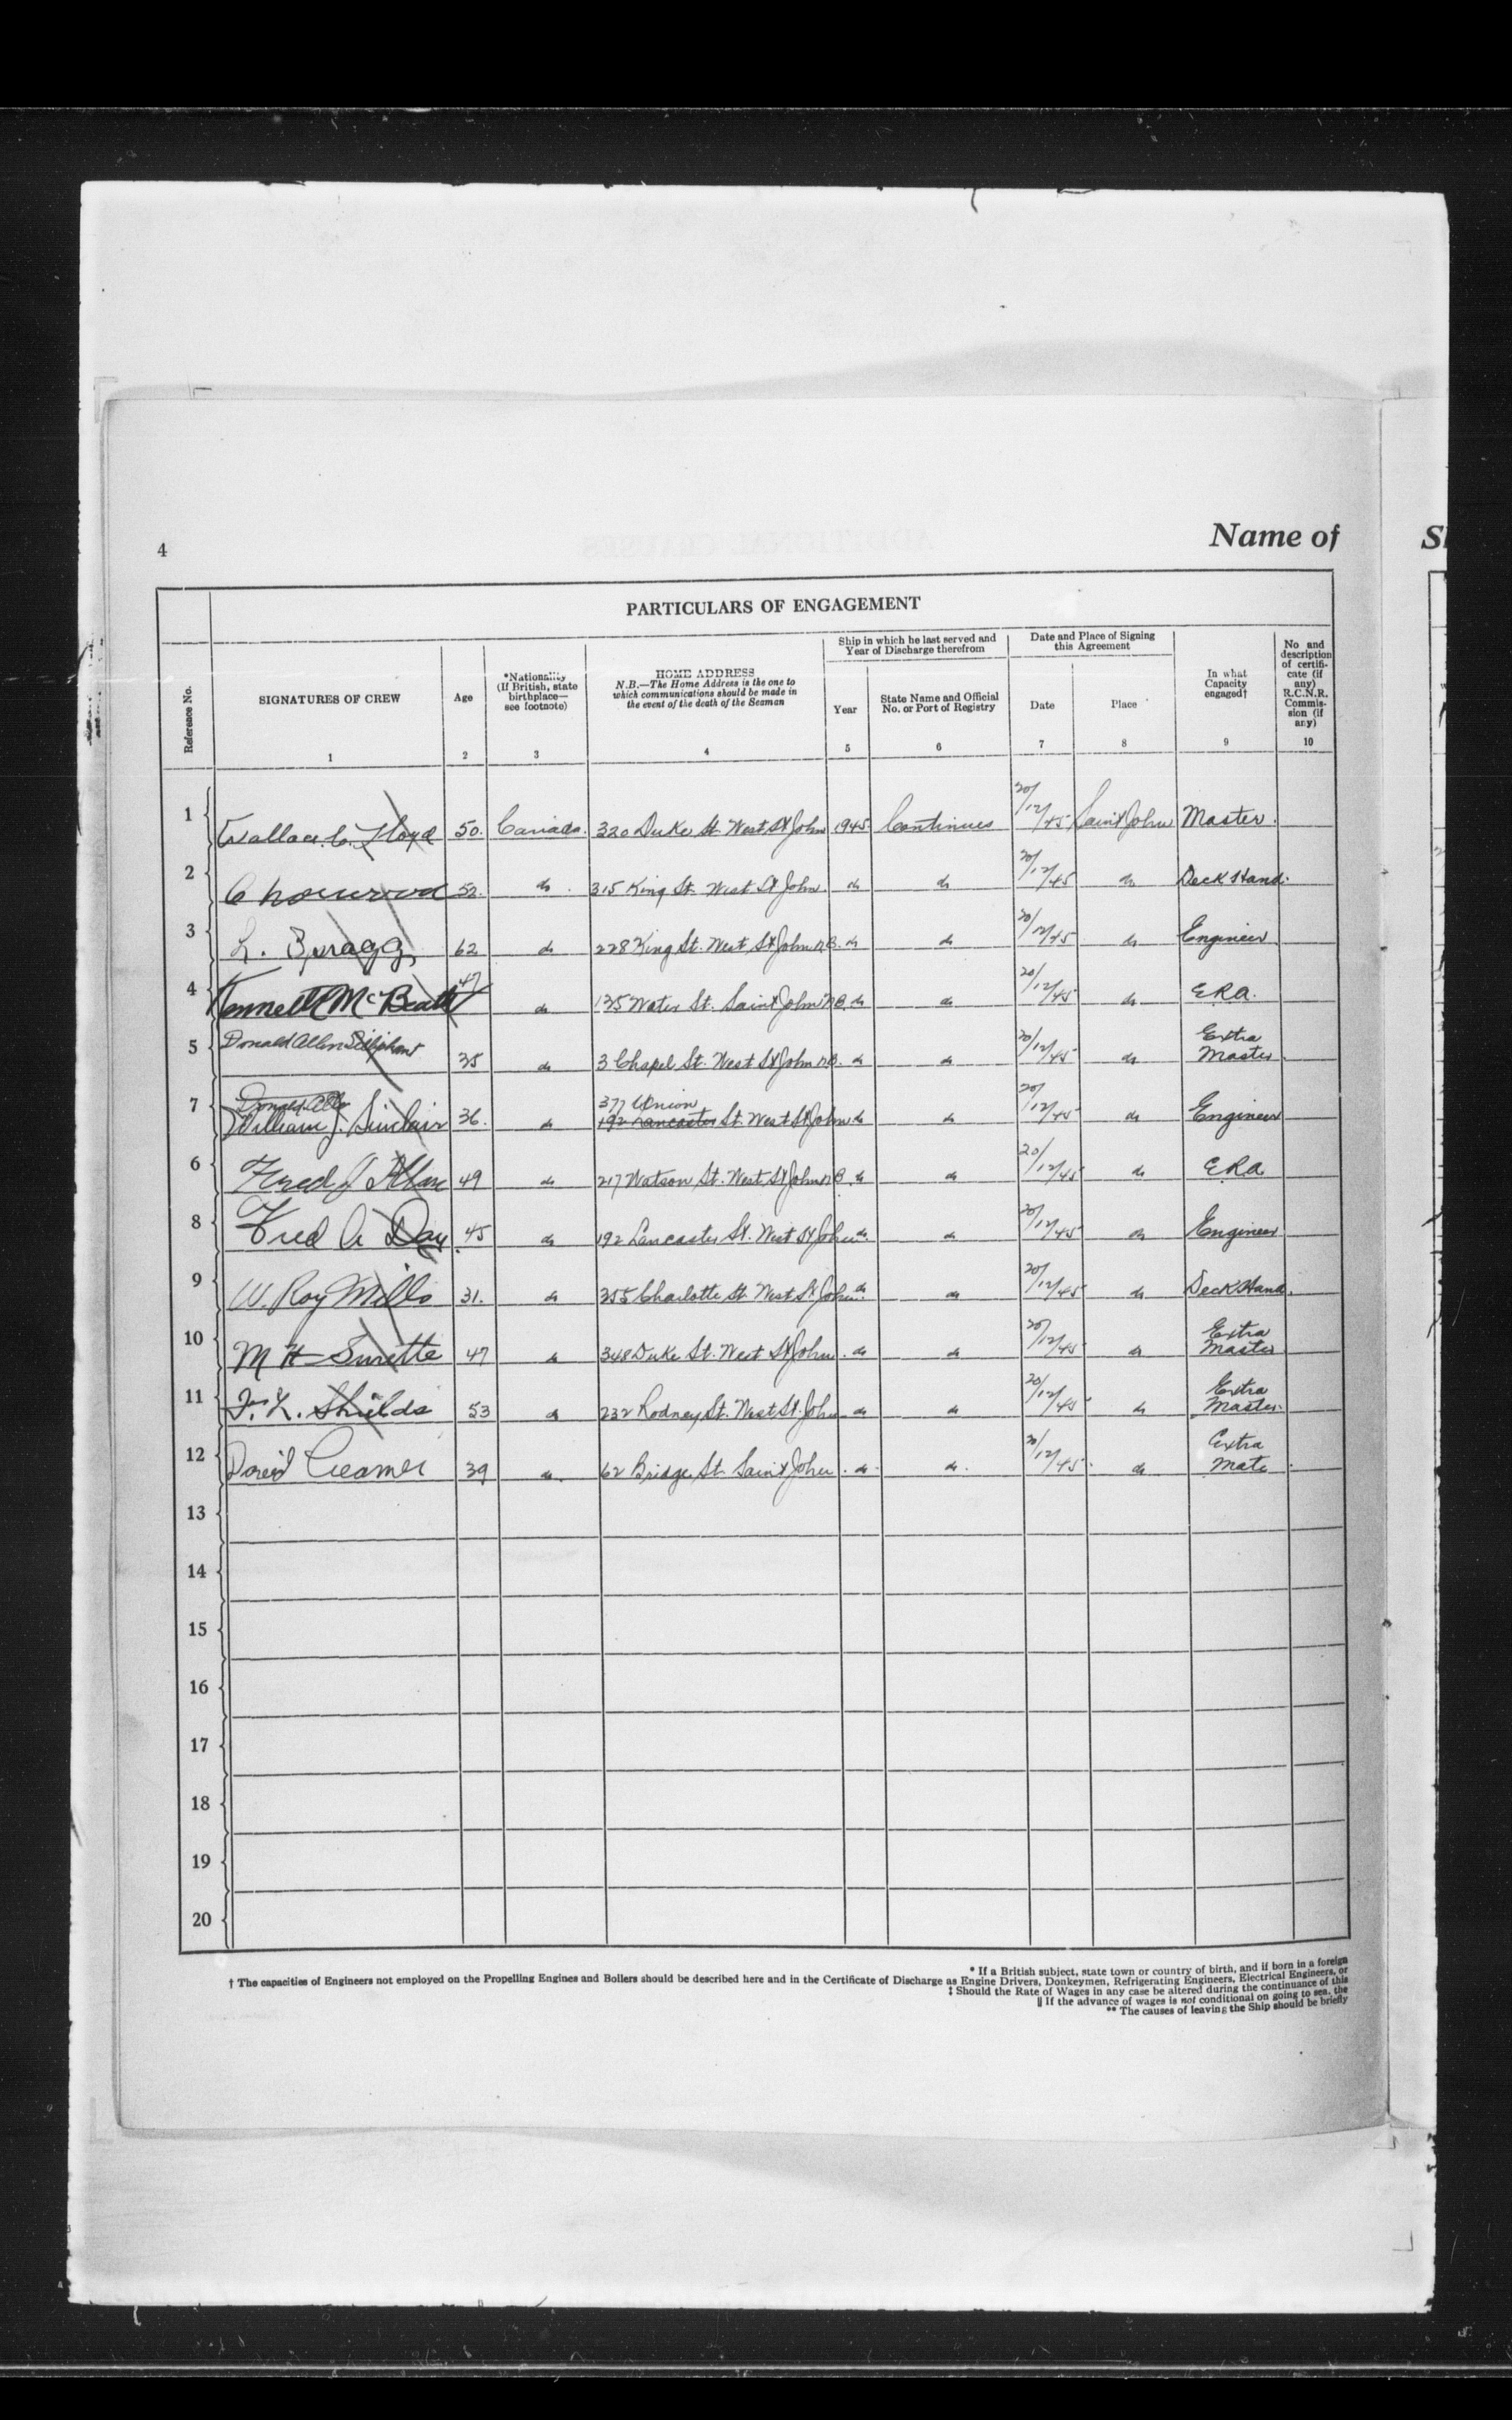 4
Name of
S
PARTICULARS OF ENGAGEMENT
Reference No.
SIGNATURES OF CREW
1
Age
2
*Nationality
(If British, state
birthplace—
see footnote)
3
HOME ADDRESS
N.B.—The Home Address is the one to
which communications should be made in
the event of the death of the Seaman
4
Ship in which he last served and
Year of Discharge therefrom
Year
5
State Name and Official
No. or Port of Registry
6
Date and Place of Signing
this Agreement
Date
7
Place
8
In what
Capacity
engaged†
9
No and
description
of certifi-
cate (if
any)
R.C.N.R.
Commis-
sion (if
any)
10
1 Wallace C. Lloyd 50. Canada. 320 Duke St. West St John 1945 Continues 20/12/45 Saint John Master.
2 52. do. 315 King St. West St John. do do 20/12/45 do Deck Hand.
3 L. Spragg 62 do 228 King St. West St John N.B. do do 20/12/45 do Engineer
4 Kenneth McBeath 47 do 135 Water St. Saint John N.B. do do 20/12/45 do E.R.A.
5 Donald Allen 35 do 3 Chapel St. West St John N.B. do do 20/12/45 do Extra Master
7 Donald Alle
William J. Sinclair 36. do 377 Union
192 Lancaster St. West St John do do 20/12/45 do Engineer
6 Fred J 49 do 217 Watson St. West St John N.B. do do 20/12/45 do E.R.A
8 Fred A Day 45 do 192 Lancaster St. West St John do do 20/12/45 do Engineer
9 W. Roy Mills 31. do 355 Charlotte St. West St John do do 20/12/45 do Deck Hand.
10 M H Surette 47 do 348 Duke St. West St John. do do 20/12/45 do Extra Master
11 F. L. Shields 53 do 232 Rodney St. West St. John do do 20/12/45 do Extra Master.
12 David Creamer 39 do. 62 Bridge St. Saint John. do. do. 20/12/45. do Extra Mate
13
14
15
16
17
18
19
20
* If a British subject, state town or country of birth, and if born in a foreign
† The capacities of Engineers not employed on the Propelling Engines and Boilers should be described here and in the Certificate of Discharge as Engine Drivers, Donkeymen, Refrigerating Engineers, Electrical Engineers, or
‡ Should the Rate of Wages in any case be altered during the continuance of this
|| If the advance of wages is not conditional on going to sea, the
** The causes of leaving the Ship should be briefly